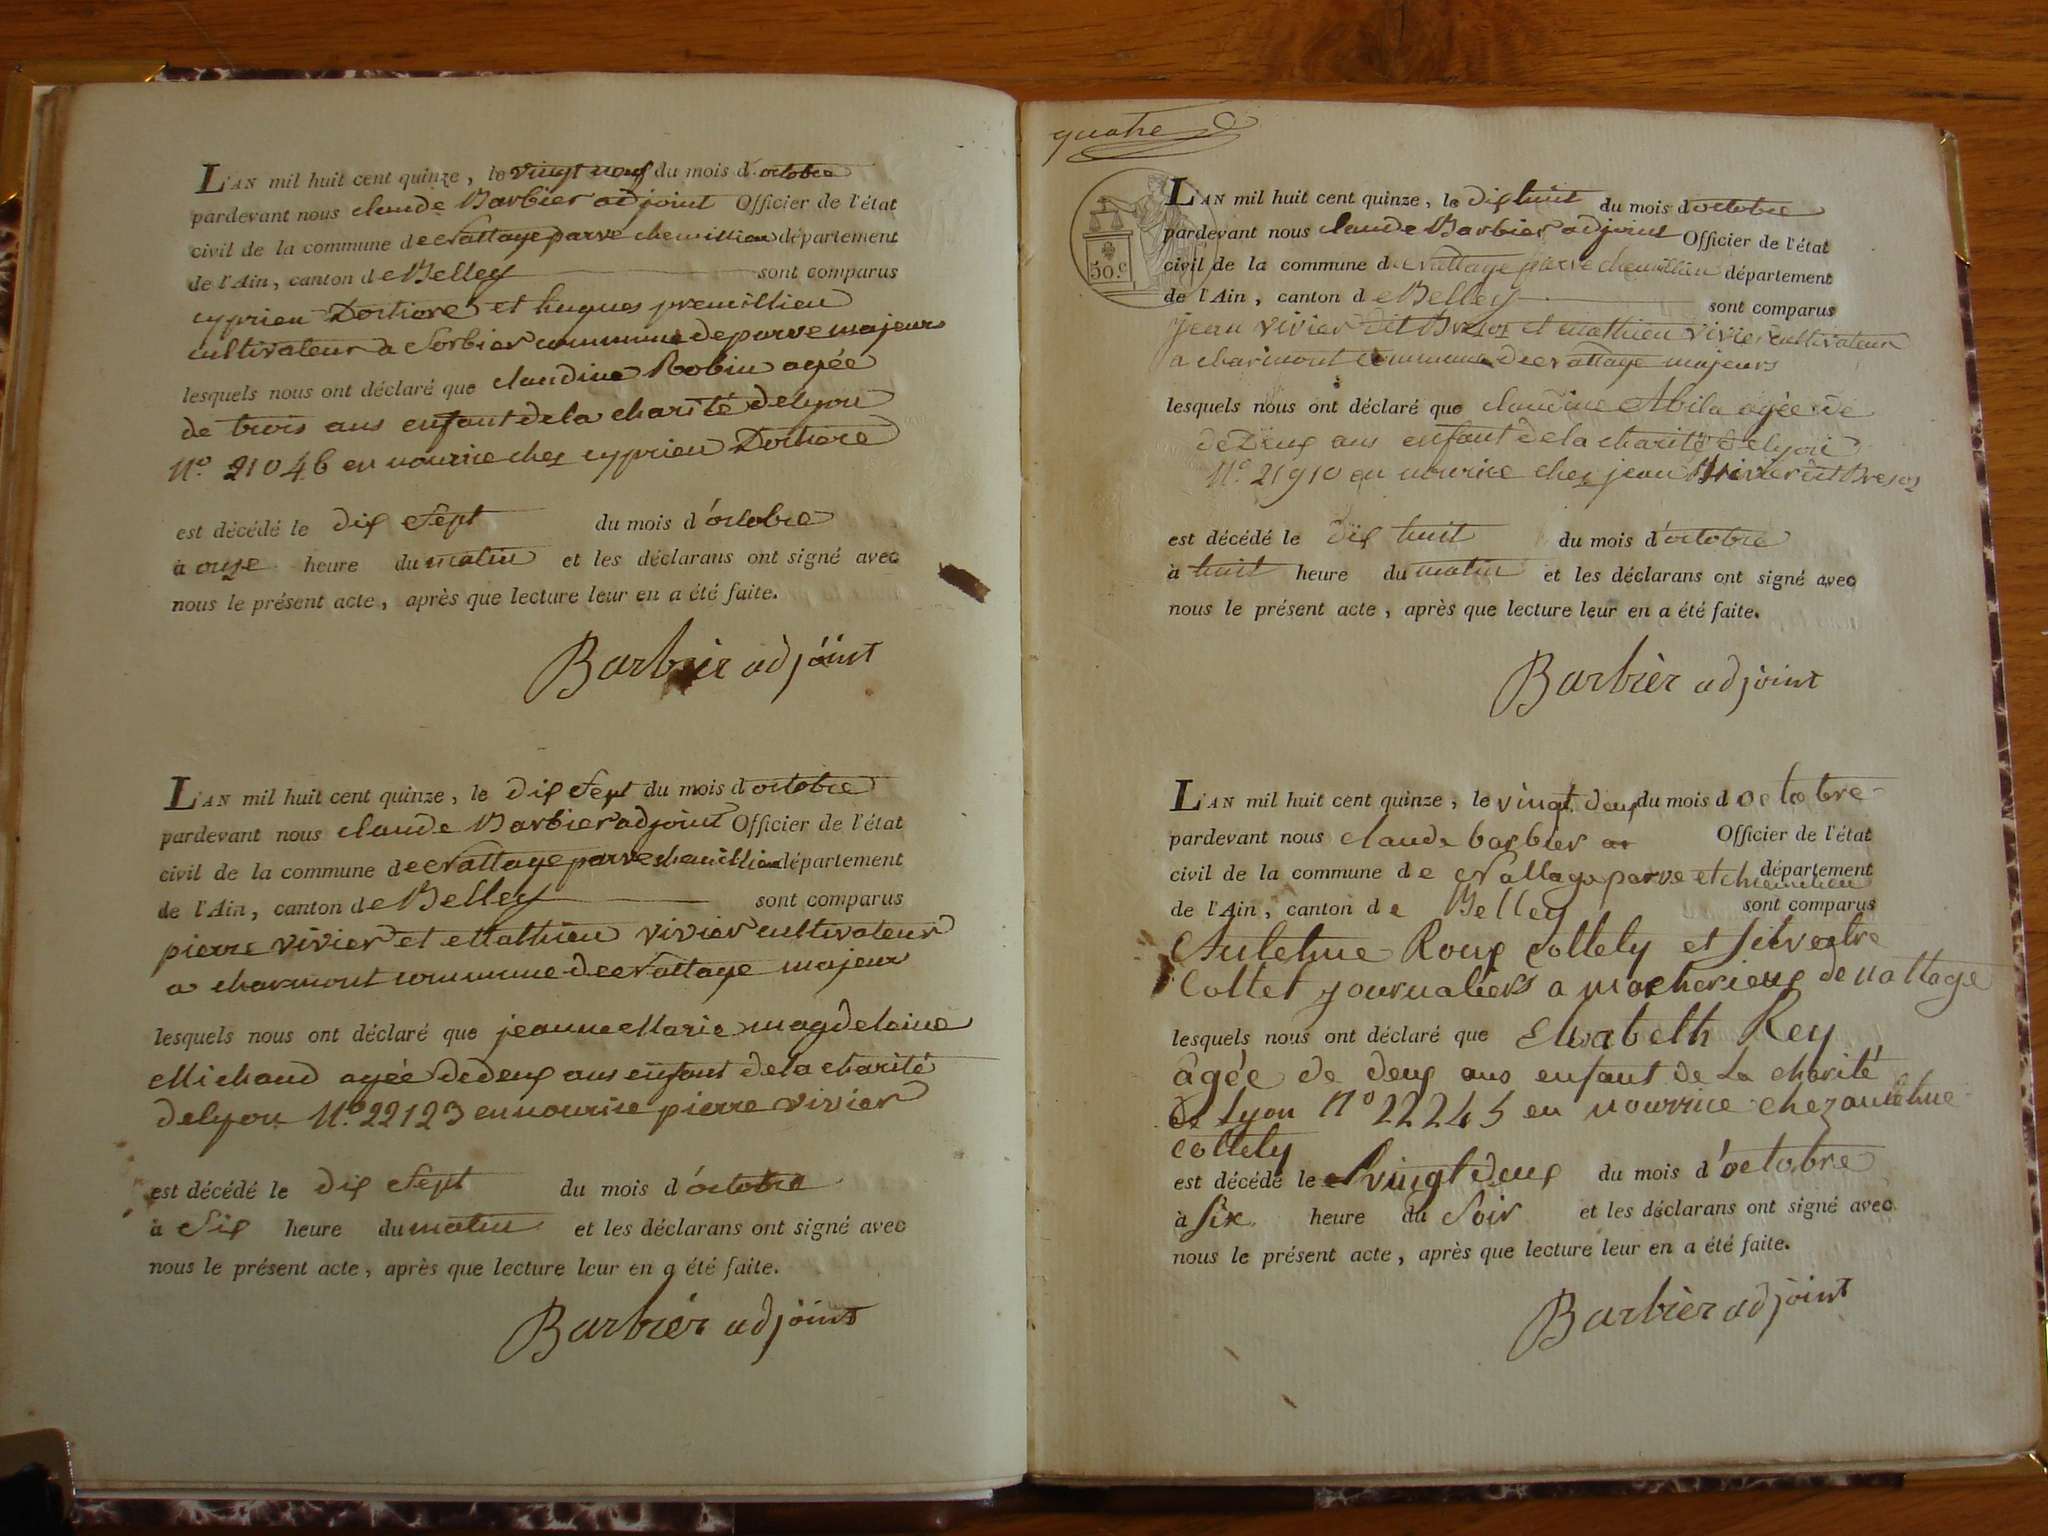 L'AN mil huit cent quinze, le vingt neuf du mois d'octobre
pardevant nous claude Barbier adjoint Officier de l'état
civil de la commune de Nattage parve chemillieu département
de l'Ain, canton de Belley sont comparus
cyprien Dortiore et hugues premillieu
cultivateur a Sorbier commune de parve majeurs
lesquels nous ont déclaré que claudine Robin agée
de trois ans enfant de la charité de lyon
N.° 21046 en nourice chez cyprien Dortiore
est décédé le dix Sept du mois d'octobre
à onze heure du matin et les déclarans ont signé avec
nous le présent acte, après que lecture leur en a été faite.
Barbier adjoint
L'AN mil huit cent quinze, le dix Sept du mois d'octobre
pardevant nous claude Barbier adjoint Officier de l'état
civil de la commune de Nattage parve chemillieu département
de l'Ain, canton de Belley sont comparus
pierre vivier et Mathieu vivier cultivateur
a charmont commune de Nattage majeur
lesquels nous ont déclaré que jeanne Marie magdelaine
Michaud agée de deux ans enfant de la charité
de lyon N.° 22123 en nourice pierre vivier
est décédé le dix Sept du mois d'octobre
à Six heure du matin et les déclarans ont signé avec
nous le présent acte, après que lecture leur en a été faite.
Barbier adjoint
quatre
50.c
L'AN mil huit cent quinze, le dix huit du mois d'octobre
pardevant nous claude Barbier adjoint Officier de l'état
civil de la commune de Nattage parve chemillieu département
de l'Ain, canton de Belley sont comparus
jean vivier dit et mathieu vivier cultivateur
a charmont commune de Nattage majeurs
lesquels nous ont déclaré que claudine Abila agée de
de Deux ans enfant de la charité de lyon
N.° 21910 en nourice chez jean vivier dit
est décédé le dix huit du mois d'octobre
à huit heure du matin et les déclarans ont signé avec
nous le présent acte, après que lecture leur en a été faite.
Barbier adjoint
L'AN mil huit cent quinze, le vingt deux du mois d octobre
pardevant nous claude barbier Officier de l'état
civil de la commune de Nattage parve et chemilieu département
de l'Ain, canton de Belley sont comparus
Antelme Roux Collety et Silvestre
Collet journaliers a de nattage
lesquels nous ont déclaré que Elisabeth Rey
âgée de deux ans enfant de la charité
de lyon N° 22245 en nourrice chez antelme
collety
est décédé le vingt deux du mois d'octobre
à six heure du Soir et les déclarans ont signé avec
nous le présent acte, après que lecture leur en a été faite.
Barbier adjoint